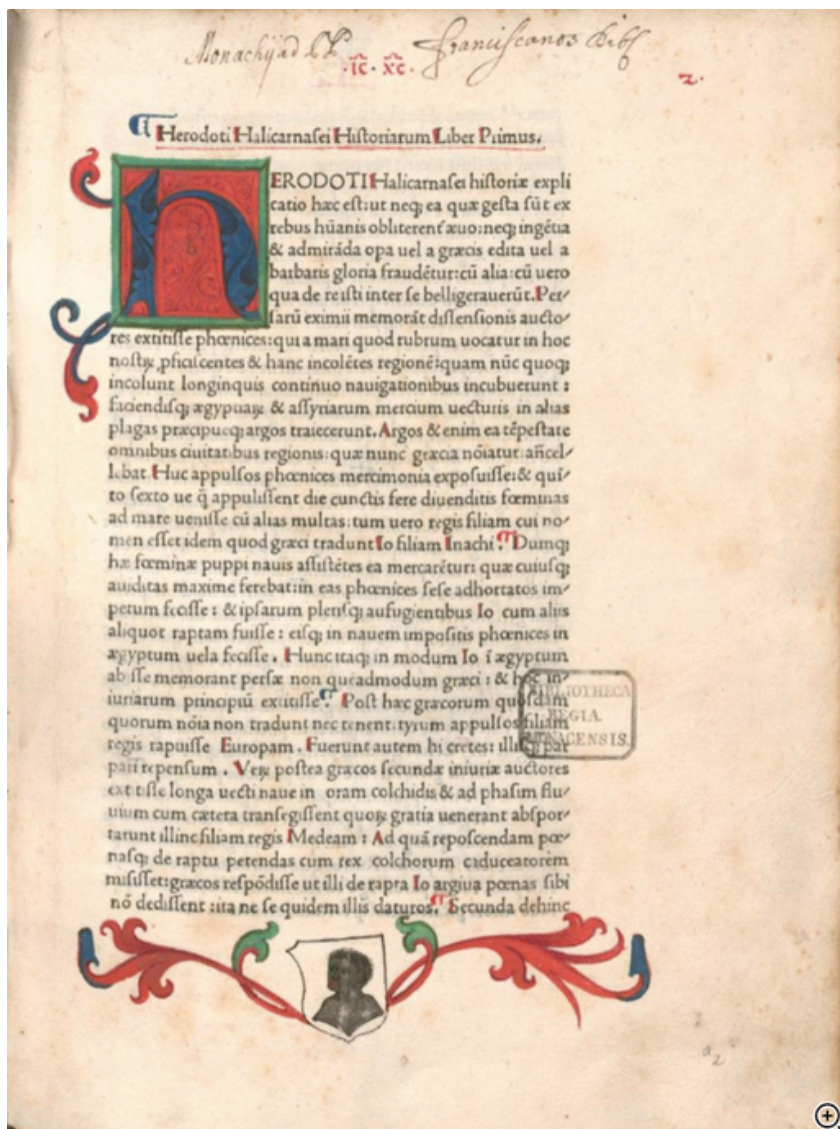 Monachij ad PP. Franciscanos Bibl
·IC· XC·
2.
Herodoti Halicarnasei Historiarum Liber Primus.
HERODOTI Halicarnasei historiæ expli
catio hæc est: ut neq; ea quæ gesta sũt ex
rebus hũanis obliterent᷑ æuo: neq; ingẽtia
& admirãda opa uel a græcis edita uel a
barbaris gloria fraudẽtur: cũ alia: cũ uero
qua de re isti inter se belligerauerũt. Per⸗
sarũ eximii memorãt dissensionis aucto⸗
res extitisse phœnices: qui a mari quod rubrum uocatur in hoc
nostrꝝ ꝓficiscentes & hanc incolẽtes regionẽ: quam nũc quoq;
incolunt longinquis continuo nauigationibus incubuerunt:
faciendisq; ægyptiaꝝ & assyriarum mercium uecturis in alias
plagas præcipueq; argos traiecerunt. Argos & enim ea tẽpestate
omnibus ciuitatibus regionis: quæ nunc græcia nõiatur: añcel⸗
lebat. Huc appulsos phœnices mercimonia exposuisse: & quĩ⸗
to sexto ue q̃ appulissent die cunctis fere diuenditis fœminas
ad mare uenisse cũ alias multas: tum uero regis filiam cui no⸗
men esset idem quod græci tradunt Io filiam Inachi. Dumq;
hæ fœminæ puppi nauis assistẽtes ea mercarẽtur: quæ cuiusq;
auiditas maxime ferebat: in eas phœnices sese adhortatos im⸗
petum fecisse: & ipsarum plerisq; aufugientibus Io cum aliis
aliquot raptam fuisse: eisq; in nauem impositis phœnices in
ægyptum uela fecisse. Hunc itaq; in modum Io ĩ ægyptum
ab sse memorant persæ non queadmodum græci: & hoc in⸗
iuriarum principiũ extitisse. Post hæc græcorum quosdam
quorum nõia non tradunt nec tenent: tyrum appulsos filiam
regis rapuisse Europam. Fuerunt autem hi cretes: illisq; par
pari repensum. Veꝝ postea græcos secundæ iniuriæ auctores
extitisse longa uecti naue in oram colchidis & ad phasim flu⸗
uium cum cætera transegissent quoꝝ gratia uenerant abspor⸗
tarunt illinc filiam regis Medeam: Ad quã reposcendam pœ⸗
nasq; de raptu petendas cum rex colchorum caduceatorem
misisset: græcos respõdisse ut illi de rapta Io argiua pœnas sibi
nõ dedissent: ita ne se quidem illis daturos. Secunda dehinc
BIBLIOTHECA
REGIA
MONACENSIS.
a2